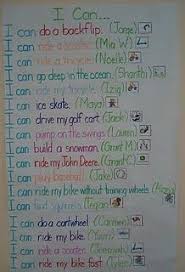 I Can...
I can do a backflip. (Jorge)
I can ride a scooter. (Mia W)
I can ride a tricycle. (Noelle)
I can go deep in the ocean. (Shanthi)
I can ride my tricycle. (Izzig)
I can ice skate. (Maya)
I can drive my golf cart. (Jack)
I can pump on the swings. (Lauren)
I can build a snowman. (Grant M.)
I can ride my John Deere. (Grant C.)
I can play baseball. (Jake)
I can ride my bike without training wheels.
I can find squirrels. (Tegan)
I can do a cartwheel. (Cammy)
I can ride my bike.
I can ride a scooter.
I can ride my bike fast. (Tyler)